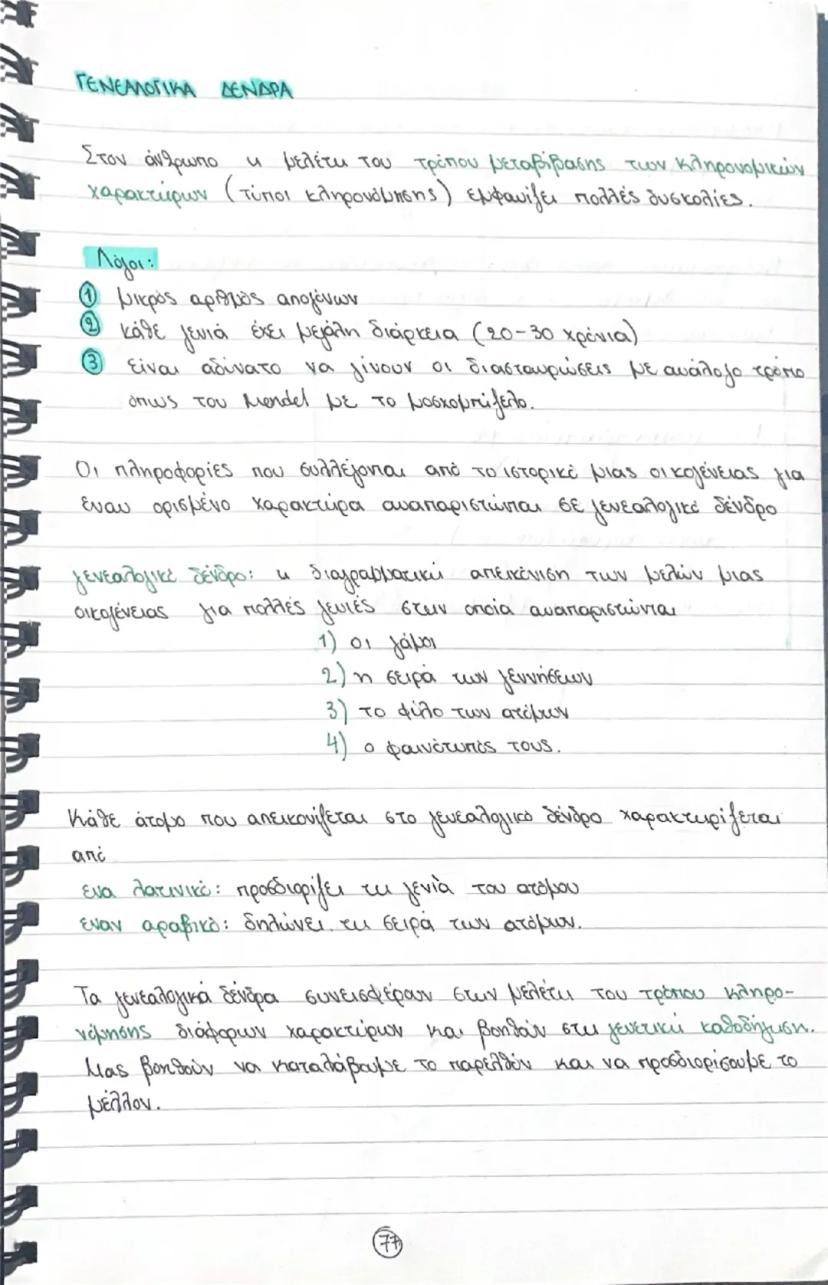 ΓΕΝΕΑΛΟΓΙΚΑ ΔΕΝΔΡΑ
Στον άνθρωπο η μελέτη του τρόπου μεταβίβασης των κληρονομικών
χαρακτήρων (τύποι κληρονόμησης) εμφανίζει πολλές δυσκολίες.
Λόγοι:
① μικρός αριθμός απογόνων
② κάθε γενιά έχει μεγάλη διάρκεια (20-30 χρόνια)
③ είναι αδύνατο να γίνουν οι διασταυρώσεις με ανάλογο τρόπο
όπως του Mendel με το μοσχομπίζελο.
Οι πληροφορίες που συλλέγονται από το ιστορικό μιας οικογένειας για
έναν ορισμένο χαρακτήρα αναπαριστώνται σε γενεαλογικό δένδρο
γενεαλογικό δένδρο: η διαγραμματική απεικόνιση των μελών μιας
οικογένειας για πολλές γενιές στην οποία αναπαριστώνται
1) οι γάμοι
2) η σειρά των γεννήσεων
3) το φύλο των ατόμων
4) ο φαινότυπός τους.
Κάθε άτομο που απεικονίζεται στο γενεαλογικό δένδρο χαρακτηρίζεται
από
ένα λατινικό: προσδιορίζει τη γενιά του ατόμου
έναν αραβικό: δηλώνει τη σειρά των ατόμων.
Τα γενεαλογικά δένδρα συνεισφέρουν στην μελέτη του τρόπου κληρο-
νόμησης διάφορων χαρακτήρων και βοηθούν στη γενετική καθοδήγηση.
Μας βοηθούν να καταλάβουμε το παρελθόν και να προσδιορίσουμε το
μέλλον.
77